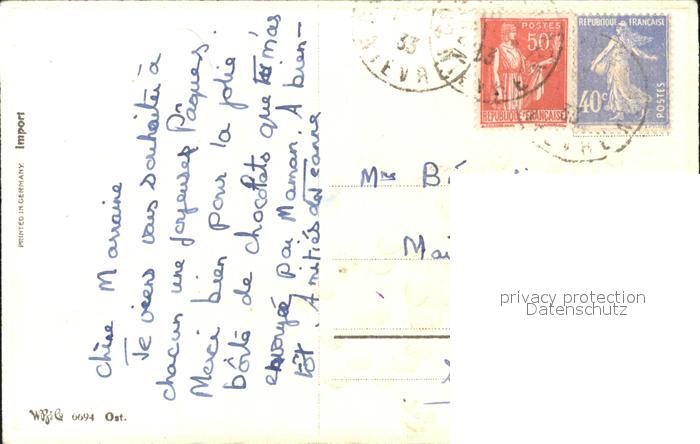 Chère Marraine
Je viens vous souhaiter à
chacun une Joyeuses Pâques
Merci bien pour la jolie
boîte de chocolats que tu m'as
envoyée par Maman. A bien-
tôt. Amitiés de
PRINTED IN GERMANY. Import
6694 Ost.
33
POSTES
50c
REPUBLIQUE FRANÇAISE
REPUBLIQUE FRANÇAISE
40c
POSTES
Mai
privacy protection
Datenschutz